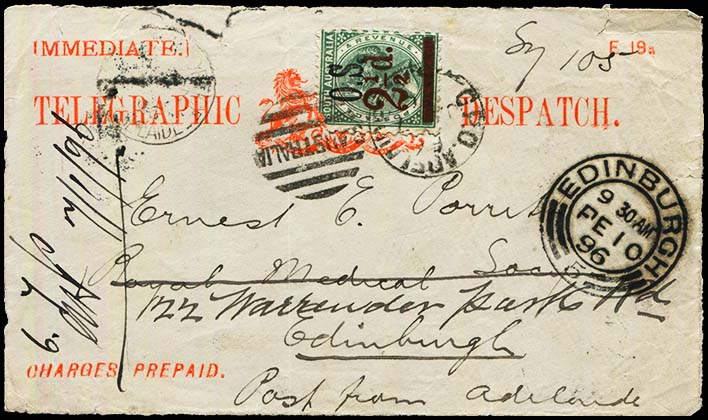 [IMMEDIATE.]
Sy 105
F. 19a
TELEGRAPHIC DESPATCH.
SOUTH AUSTRALIA
& REVENUE
O.S.
2½d.
G.P.O. ADELAIDE
AUSTRALIA
EDINBURGH
9 30 AM
FE 10
96
Ernest E. Porritt
Royal Medical Soc
122 Warrender Park Rd
Edinburgh
CHARGES PREPAID.
Post from Adelaide